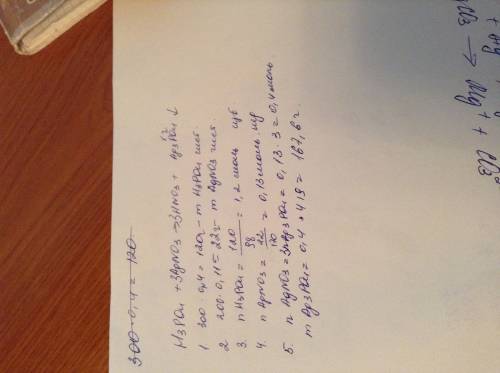 300·0,4 = 120
H3PO4 + 3AgNO3 → 3HNO3 + Ag3PO4 ↓
1 300·0,4 = 120г – m H3PO4 чист.
2 200·0,11 = 22г – m AgNO3 чист.
3. n H3PO4 = 120/98 = 1,2 моль изб
4. n AgNO3 = 22/170 = 0,13 моль
5. n AgNO3 = 3nAg3PO4 = 0,13·3 = 0,4 моль.
m Ag3PO4 = 0,4 · 419 = 167,6 г.
→ Mg + Cl2